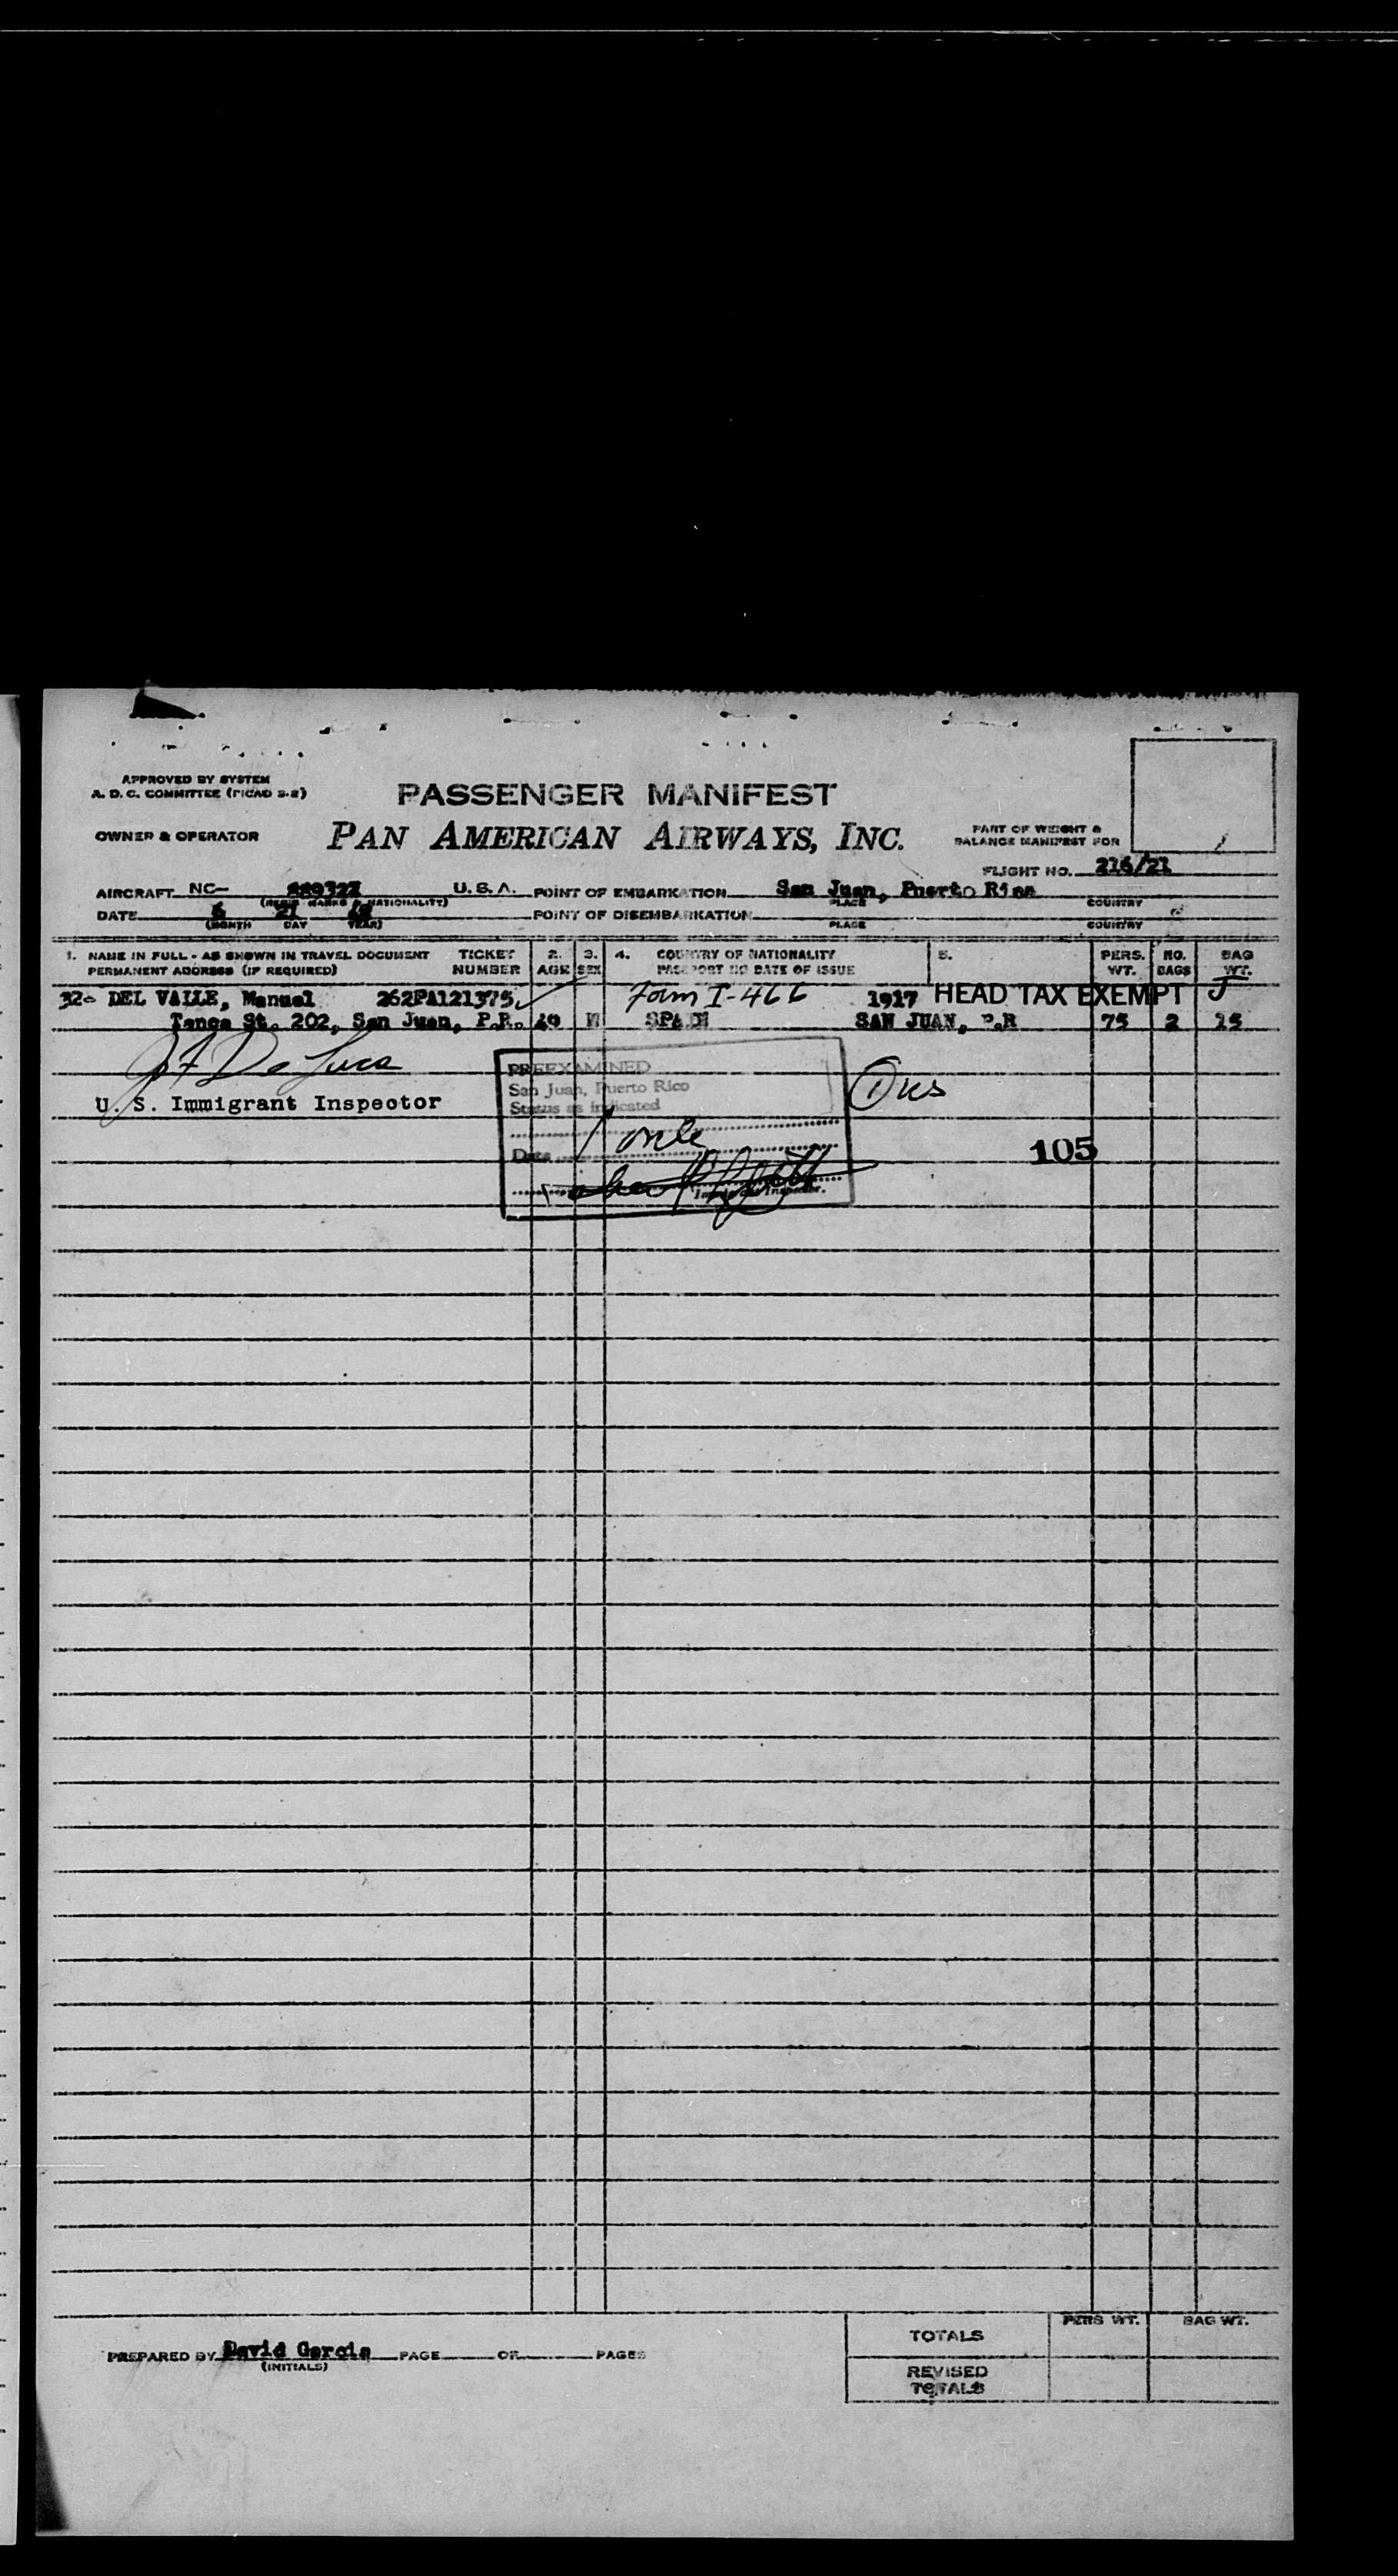 APPROVED BY SYSTEM
A. D. C. COMMITTEE (PICAO 2-2)
PASSENGER MANIFEST
OWNER & OPERATOR
PAN AMERICAN AIRWAYS, INC.
PART OF WEIGHT &
BALANCE MANIFEST FOR
FLIGHT NO. 216/21
AIRCRAFT NC- U. S. A. POINT OF EMBARKATION San Juan, Puerto Rico
(REGIS. MARKS & NATIONALITY) PLACE COUNTRY
DATE 6 21 POINT OF DISEMBARKATION
(MONTH DAY YEAR) PLACE COUNTRY
1. NAME IN FULL - AS SHOWN IN TRAVEL DOCUMENT TICKET 2. 3. 4. COUNTRY OF NATIONALITY 5. PERS. NO. BAG
PERMANENT ADDRESS (IF REQUIRED) NUMBER AGE SEX PASSPORT NO DATE OF ISSUE WT. BAGS WT.
32- DEL VALLE, Manuel 262PA121375 Form I-466 1917 HEAD TAX EXEMPT J
Tanca St. 202, San Juan, P.R. 49 M SPAIN SAN JUAN, P.R 75 2 15
J F De Luca
U. S. Immigrant Inspector
PREEXAMINED
San Juan, Puerto Rico
Status as indicated
1 only
Date
Immigrant Inspector.
105
PREPARED BY David Garcia PAGE OF PAGES
(INITIALS)
PERS WT. BAG WT.
TOTALS
REVISED
TOTALS